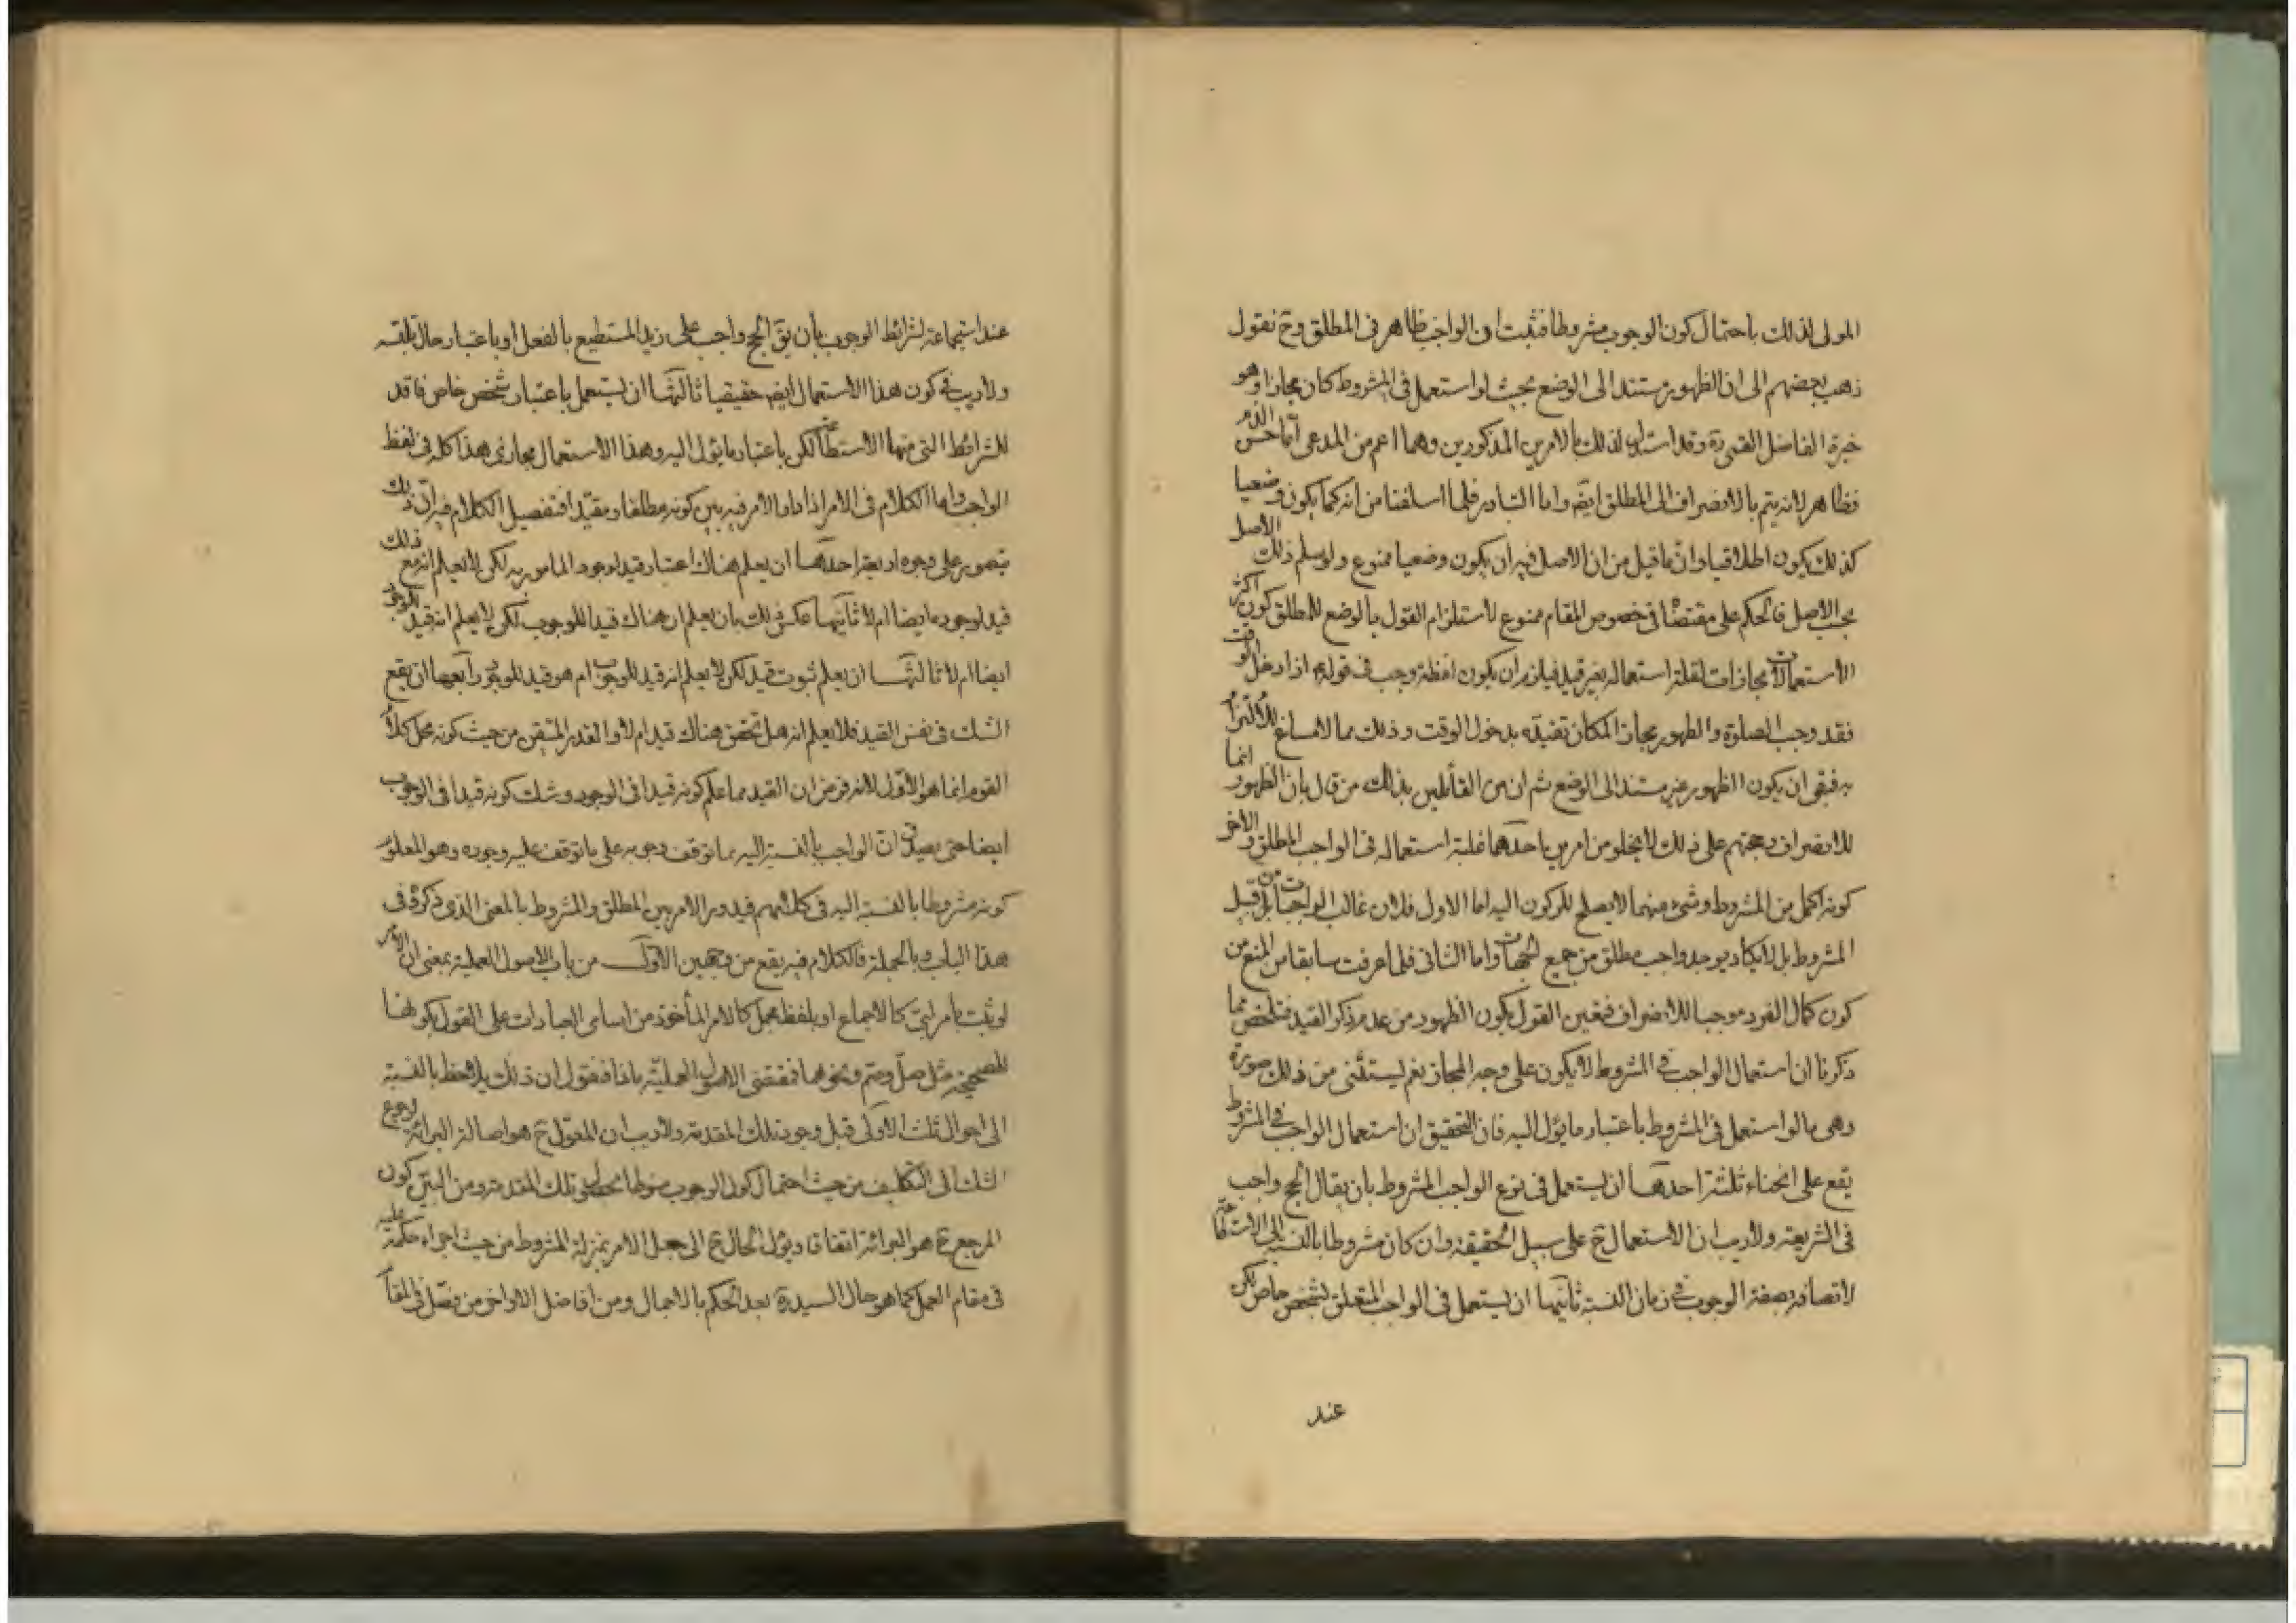 المولى لذلك باحتمال كون الوجوب مشروطا فثبت ان الواجب ظاهر فى المطلق وح نقول
ذهب بعضهم الى ان الظهور مستند الى الوضع بحيث لو استعمل فى المشروط كان مجازا وهو
خيرة الفاضل القمى ره وقد استدل لذلك بالامرين المذكورين وهما اعم من المدعى اما حسن الذم
فظاهر لانه يتم بالانصراف الى المطلق ايضه واما التبادر فلما اسلفنا من انه كما يكون وضعيا
كذلك يكون اطلاقيا وان ما قيل من ان الاصل فيه ان يكون وضعيا ممنوع ولو سلم ذلك الاصل
بحسب الاصل فالحكم على مقتضاه فى خصوص المقام ممنوع لاستلزام القول بالوضع للمطلق كون اكثر
الاستعمالات مجازات لقلة استعماله بغير قيد فيلزم ان يكون لفظة وجب فى قوله اذا دخل الوقت
فقد وجب الصلوة والطهور مجازا لمكان تقيده بدخول الوقت وذلك مما لا مساغ للالتزام
به فبقى ان يكون الظهور غير مستند الى الوضع ثم ان من القائلين بذلك من قال بان الظهور انما
للانصراف وحجتهم على ذلك لا يخلو من امرين احدهما غلبة استعماله فى الواجب المطلق والاخر
كونه اكمل من المشروط وشىء منهما لا يصلح للركون اليه اما الاول فلان غالب الواجبات من قبيل
المشروط بل لا يكاد يوجد واجب مطلق من جميع الجهات واما الثانى فلما عرفت سابقا من المنع من
كون كمال الفرد موجبا للانصراف فتعين القول بكون الظهور من عدم ذكر القيد فتلخص مما
ذكرنا ان استعمال الواجب فى المشروط لا يكون على وجه المجاز نعم يستثنى من ذلك صورة
وهى ما لو استعمل فى المشروط باعتبار ما يؤل اليه فان التحقيق ان استعمال الواجب فى المشروط
يقع على انحاء ثلثة احدها ان يستعمل فى نوع الواجب المشروط بان يقال الحج واجب
فى الشريعة ولاريب ان الاستعمال ح على سبيل الحقيقة وان كان مشروطا بالنسبة الى
لاتصافه بصفة الوجوب فى زمان النسبة ثانيها ان يستعمل فى الواجب المتعلق لشخص خاص لكن
عند
عند استجماعه لشرائط الوجوب بأن يق الحج واجب على زيد المستطيع بالفعل او باعتبار حال تلبسه
ولاريب فى كون هذا الاستعمال ايضه حقيقيا ثالثها ان يستعمل باعتبار شخص خاص فاقد
للشرائط التى منها الاستطاعة لكن باعتبار ما يؤل اليه وهذا الاستعمال مجازى هذا كله فى لفظ
الواجب واما الكلام فى الامر اذا دار الامر فيه بين كونه مطلقا ومقيدا فتفصيل الكلام فيه ان ذلك
يتصور على وجوه اربعة احدها ان يعلم هناك اعتبار قيد لوجود المامور به لكن لا يعلم انه مع ذلك
قيد لوجوبه ايضا ام لا ثانيها عكس ذلك بان يعلم ان هناك قيدا للوجوب لكن لا يعلم انه قيد للوجود
ايضا ام لا ثالثها ان يعلم ثبوت قيد لكن لا يعلم انه قيد للوجوب ام هو قيد للوجود رابعها ان يقع
الشك فى نفس القيد فلا يعلم انه هل تحقق هناك قيد ام لا والقدر المتيقن من حيث كونه محل كلام
القوم انما هو الاول لانه فرض ان القيد مما علم كونه قيدا فى الوجود وشك كونه قيدا فى الوجوب
ايضا حتى يصدق ان الواجب بالنسبة اليه مما توقف وجوبه على ما توقف عليه وجوده وهو المعلوم
كونه مشروطا بالنسبة اليه فى كلماتهم فيدور الامر بين المطلق والمشروط بالمعنى الذى ذكروه فى
هذا الباب وبالجملة فالكلام فيه يقع من وجهين الاول من باب الاصول العملية بمعنى ان الامر
لو ثبت بامر لبى كالاجماع او بلفظ مجمل كالامر المأخوذ من اسامى العبادات على القول بكونها
للصحيحة مثل صل وصم ونحوهما فمقتضى الاصول العملية ماذا فنقول ان ذلك يلاحظ بالنسبة
الى احوال ثلث الاولى قبل وجود تلك المقدمة ولاريب ان المعول ح هو اصالة البرائة لرجوع
الشك الى التكليف من حيث احتمال كون الوجوب منوطا بحصول تلك المقدمة ومن البين كون
المرجع ح هو البرائة اتفاقا ويؤل الحال ح الى جعل الامر بمنزلة المشروط من حيث اجراء حكمه عليه
فى مقام العمل كما هو حال السيد ره بعد الحكم بالاجمال ومن افاضل الاواخر من فصل فى المقام